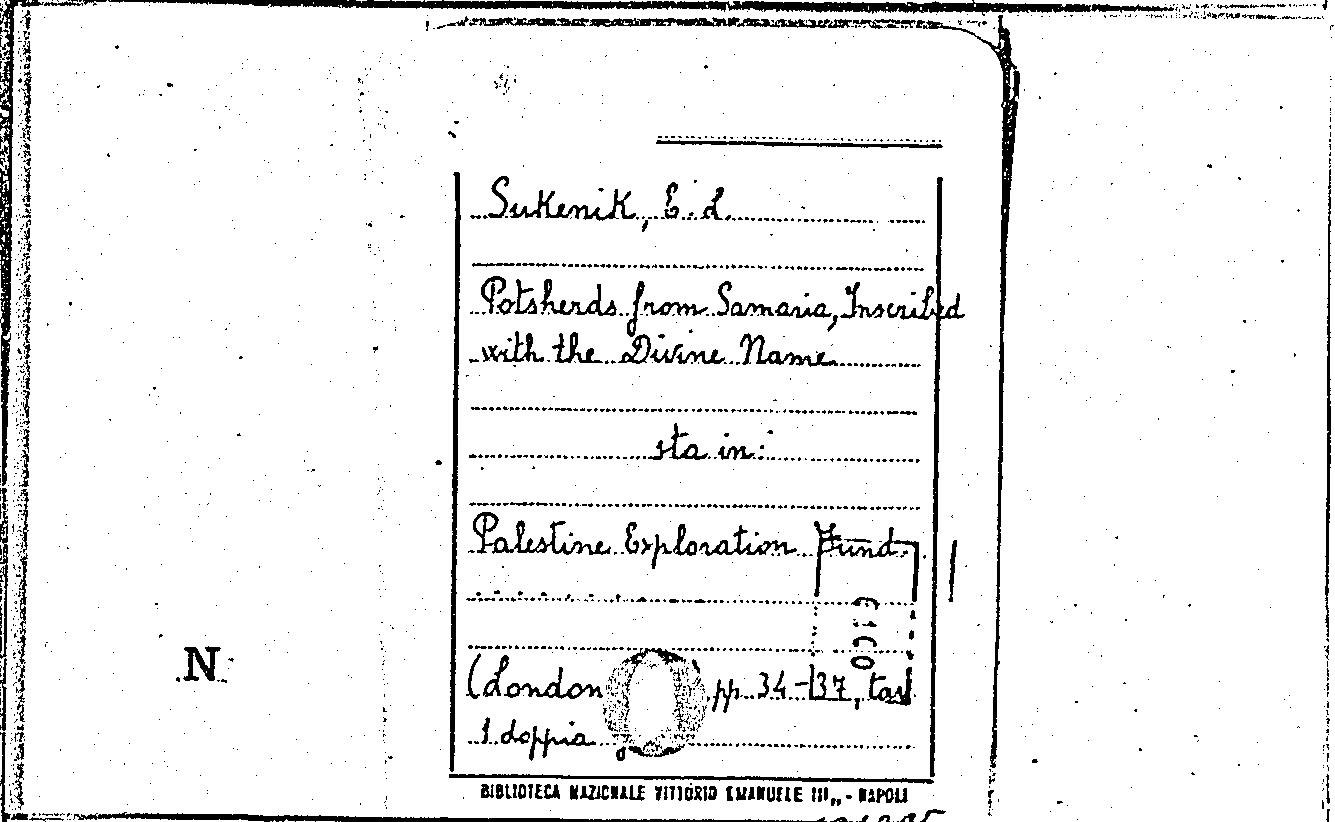 Sukenik, E. L.
Potsherds from Samaria, Inscribed
with the Divine Name
sta in:
Palestine Exploration Fund.
N
(London pp. 34-37, tav
1 doppia
BIBLIOTECA NAZIONALE VITTORIO EMANUELE III,, - NAPOLI